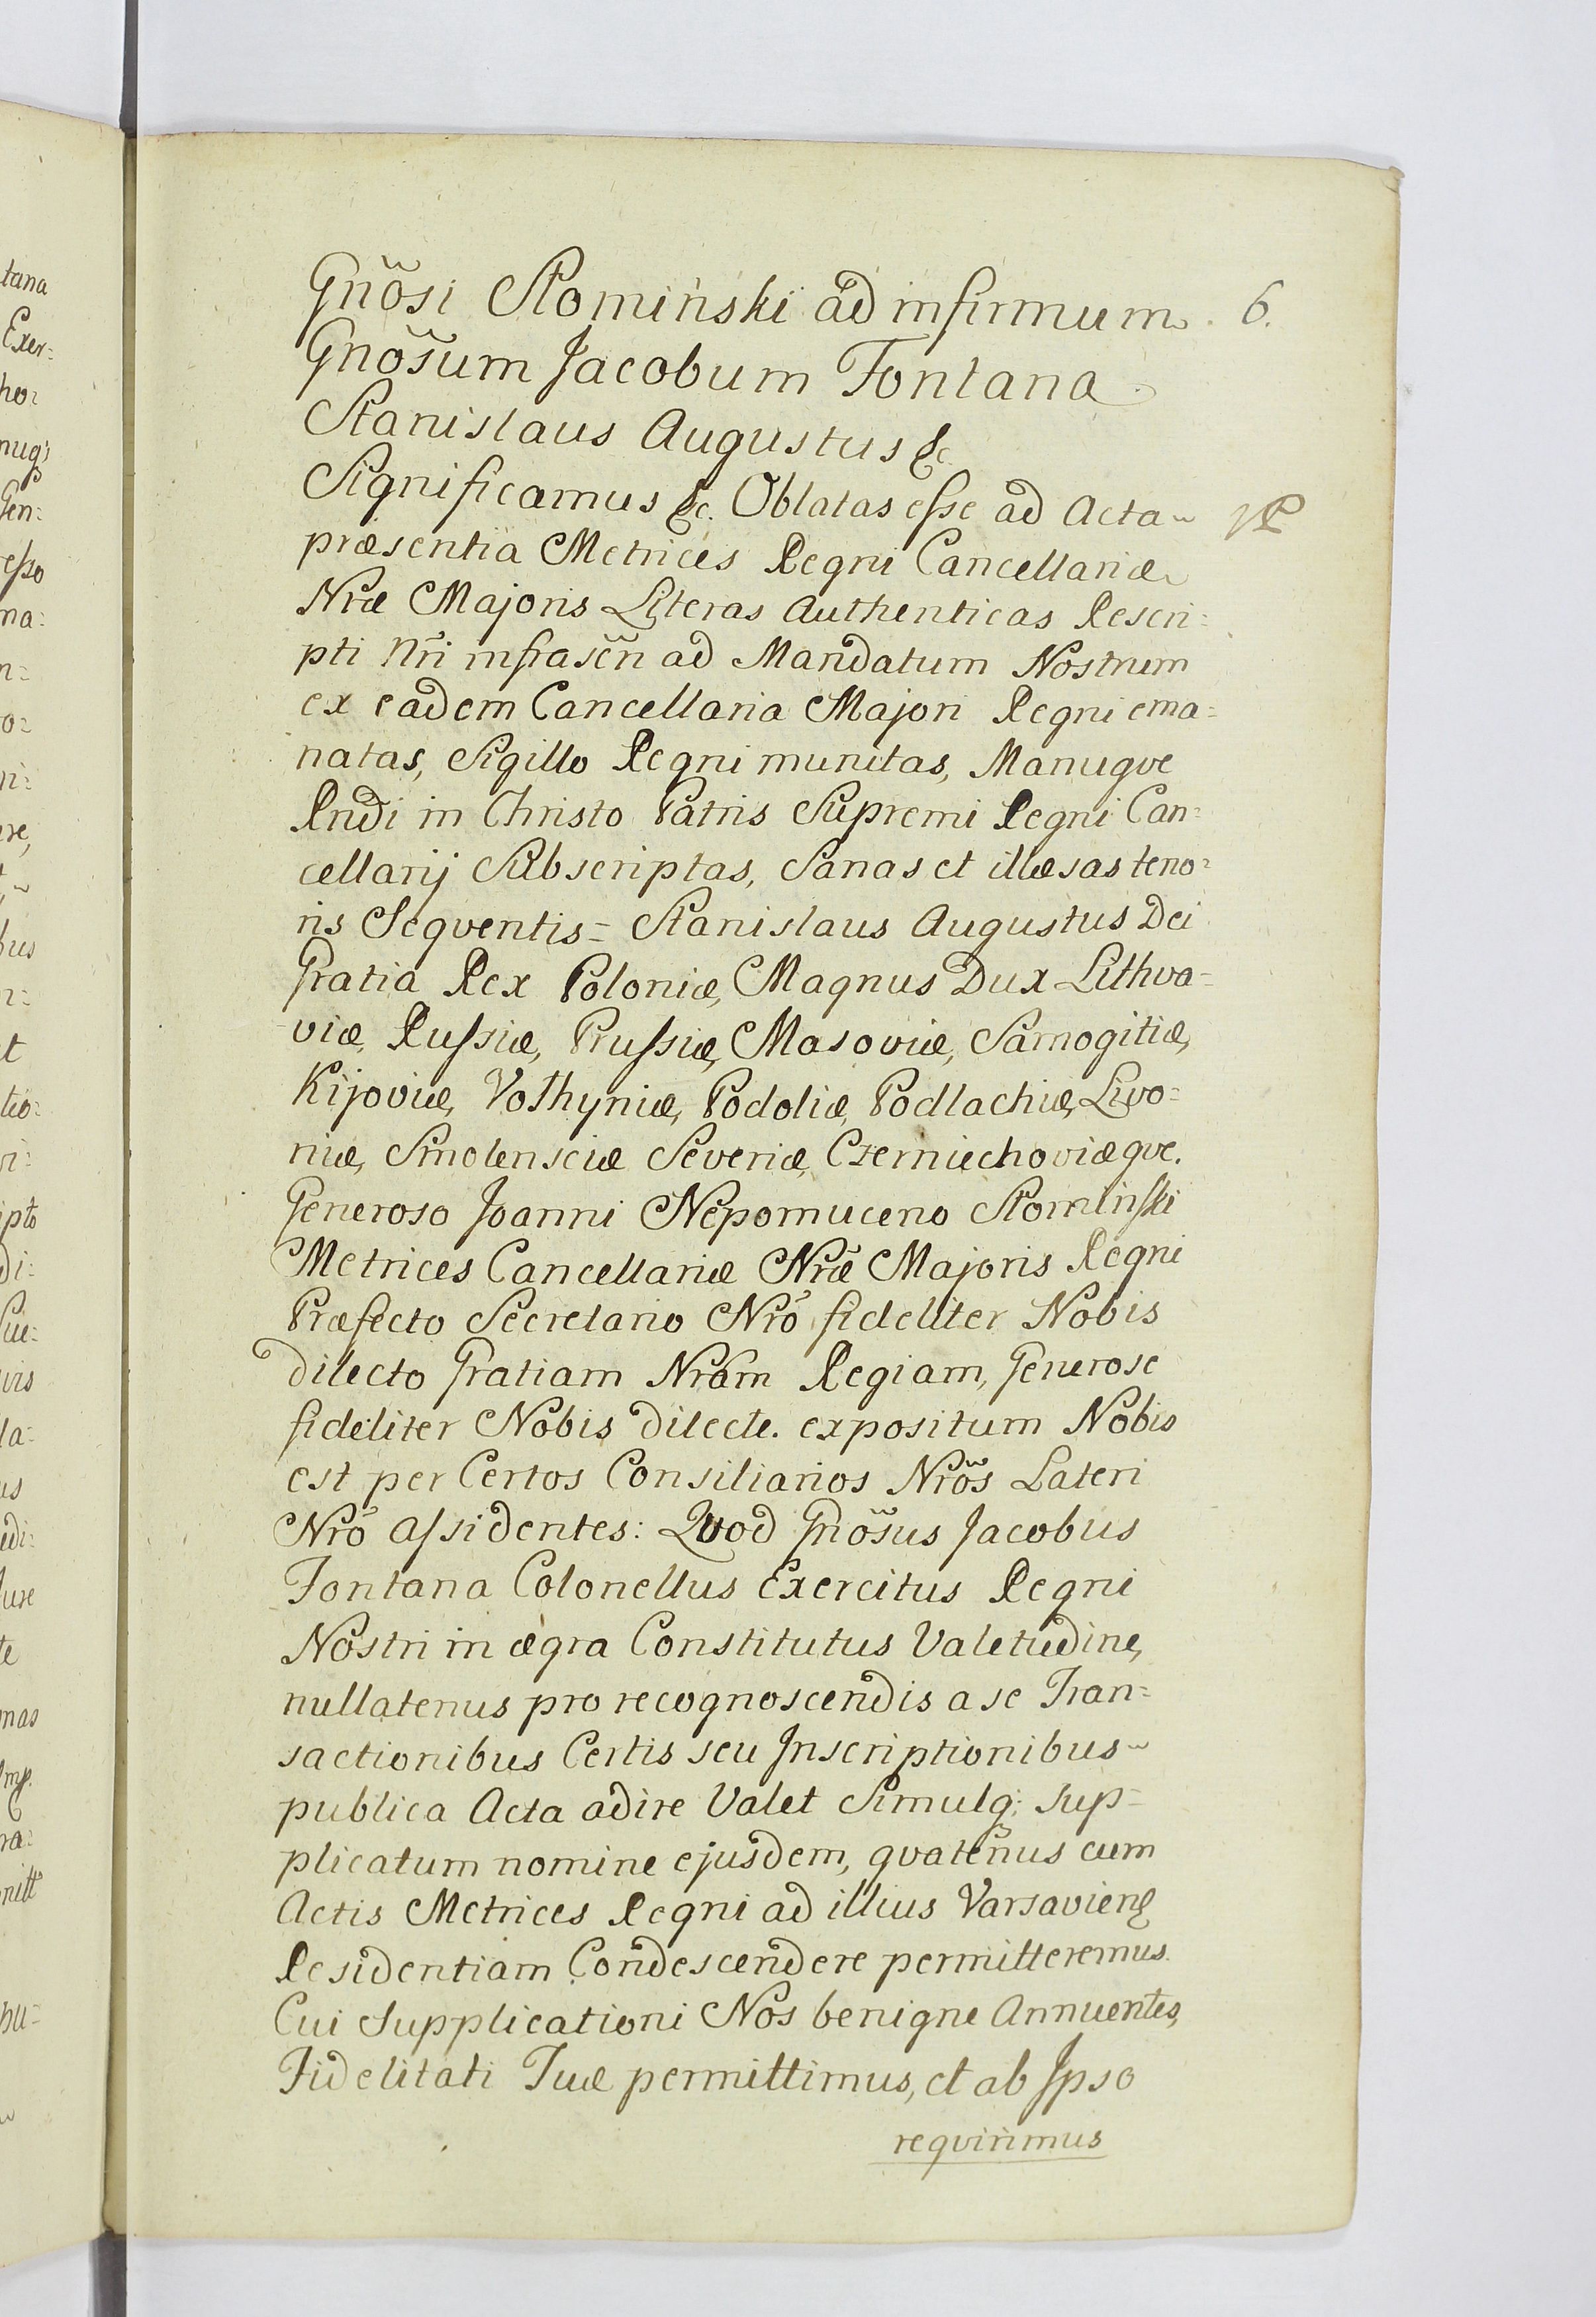 Gñõsi Słomiński ad infirmum 6.
Gnõsum Jacobum Fontana
Stanislaus Augustus &c
Significamus &c. Oblatas eſse ad Acta
præsentia Metrices Regni Cancellariæ
Nræ Majoris Literas Authenticas Rescri=
pti Nr̃i infrascr̃i ad Mandatum Nostrum
ex eadem Cancellaria Majori Regni ema=
natas, Sigillo Regni munitas, Manuqve
Rndi in Christo Patris Supremi Regni Can=
cellarij Subscriptas, Sanas et illæsas teno=
ris Seqventis = Stanislaus Augustus Dei
Gratia Rex Poloniæ, Magnus Dux Lithva=
viæ, Ruſsiæ, Pruſsiæ, Masoviæ, Samogitiæ,
Kijoviæ, Vołhyniæ, Podoliæ, Podlachiæ, Livo=
niæ, Smolensciæ Severiæ, Czerniechoviæqve.
Generoso Joanni Nepomuceno Słomiński
Metrices Cancellariæ Nræ̃ Majoris Regni
Præfecto Secretario Nrõ fideliter Nobis
dilecto Gratiam Nrãm Regiam, Generose
fideliter Nobis dilecte. expositum Nobis
est per Certos Consiliarios Nrõs Lateri
Nrõ Aſsidentes: Qvod Gnõsus Jacobus
Fontana Colonellus Exercitus Regni
Nostri in ægra Constitutus Valetudine,
nullatenus pro recognoscendis a se Tran=
sactionibus Certis seu Inscriptionibus
publica Acta adire Valet Simulq; sup=
plicatum nomine ejusdem, qvateñus cum
Actis Metrices Regni ad illius Varsavieñ
Residentiam Condescendere permitteremus.
Cui Supplicationi Nos benigne Annuentes,
Fidelitati Tuæ permittimus, et ab Ipso
reqvirimus